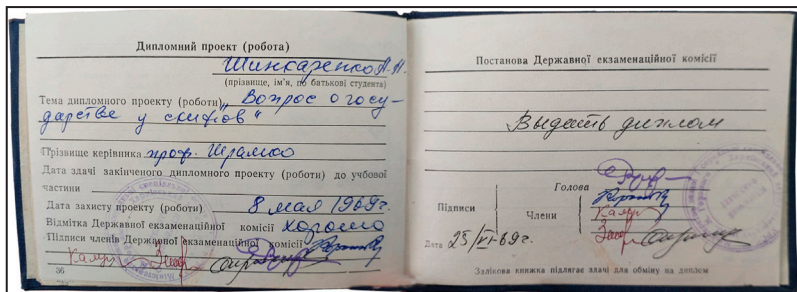 Дипломний проект (робота)
Шинкаренко А.А.
(прізвище, ім'я, по батькові студента)
Тема дипломного проекту (роботи) „Вопрос о госу-
дарстве у скифов"
Прізвище керівника проф. Шрамко
Дата здачі закінченого дипломного проекту (роботи) до учбової
частини
Дата захисту проекту (роботи) 8 мая 1969г.
Відмітка Державної екзаменаційної комісії хорошо
Підписи членів Державної екзаменаційної комісії
36
Постанова Державної екзаменаційної комісії
Выдать диплом
Голова
Підписи
Члени
Дата 25/VI-69г.
Залікова книжка підлягає здачі для обміну на диплом